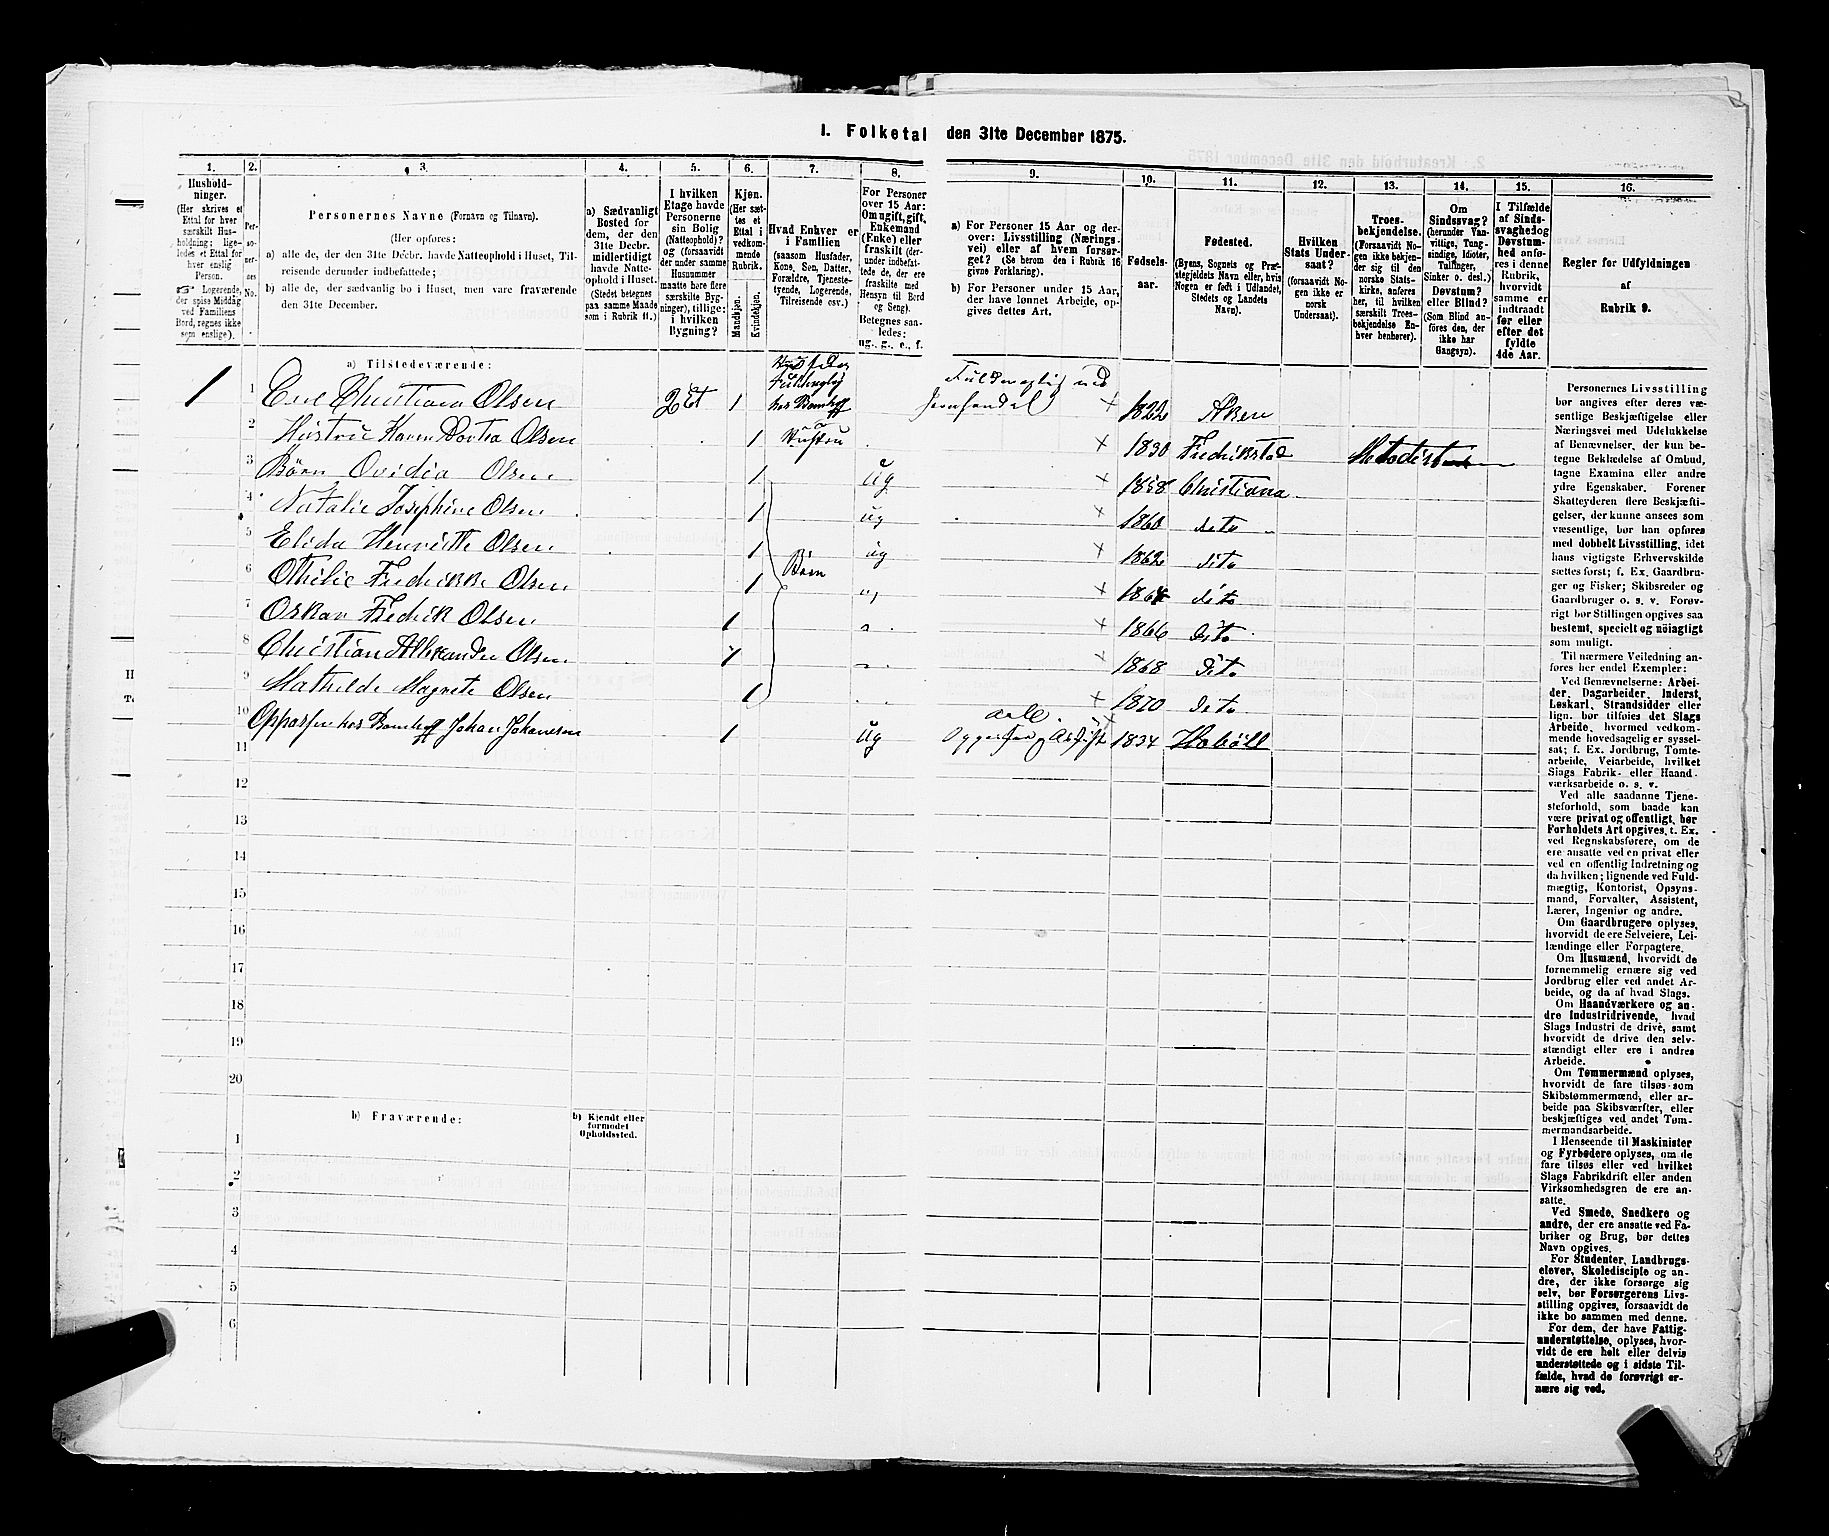 1. Folketal den 31te December 1875.
1.
2.
3.
4.
5.
6.
7.
8.
9.
10.
11.
12.
13.
14.
15.
16.
Hushold-
ninger.
(Her skrives et
Ettal for hver
særskilt Hus-
holdning; lige-
ledes et Ettal for
hver enslig
Person.
Logerende,
der spise Middag
ved Familiens
Bord, regnes ikke
som enslige).
Per-
so-
ner-
nes
No.
Personernes Navne (Fornavn og Tilnavn).
(Her opføres:
a) alle de, der den 31te Decbr. havde Natteophold i Huset, Til-
reisende derunder indbefattede;
b) alle de, der sædvanlig bo i Huset, men vare fraværende
den 31te December.
a) Sædvanligt
Bosted for
dem, der den
31te Decbr.
midlertidigt
havde Natte-
ophold i Huset.
(Stedet betegnes
paa samme Maade
som i Rubrik 11.)
I hvilken
Etage havde
Personerne
sin Bolig
(Natteophold)?
og (forsaavidt
der under samme
Husnummer
maatte høre flere
særskilte Byg-
ninger), tillige:
i hvilken
Bygning?
Kjøn.
(Her sæt-
tes et
Ettal i
vedkom-
mende
Rubrik.
Mandkjøn.
Kvindekjøn.
Hvad Enhver er
i Familien
(saasom Husfader,
Kone, Søn, Datter,
Forældre, Tjeneste-
tyende, Logerende,
Tilreisende osv.)
For Personer
over 15 Aar:
Om ugift, gift,
Enkemand
(Enke) eller
fraskilt (der-
under indbefat-
tede de, der ere
fraskilte med
Hensyn til Bord
og Seng).
Betegnes saa-
ledes:
ug., g., e., f.
a) For Personer 15 Aar og der-
over: Livsstilling (Nærings-
vei) eller af hvem forsør-
get? (Se herom den i Rubrik 16
givne Forklaring).
b) For Personer under 15 Aar,
der have lønnet Arbeide, op-
gives dettes Art.
Fødsels-
aar.
Fødested.
(Byens, Sognets og Præ-
stegjeldets Navn eller, hvis
Nogen er født i Udlandet,
Stedets og Landets
Navn).
Hvilken
Stats Under-
saat?
(forsaavidt No-
gen ikke er
norsk
Undersaat).
Troes-
bekjendelse.
(Forsaavidt No-
gen ikke bekjen-
der sig til den
norske Stats-
kirke, anføres
her, til hvilken
særskilt Troes-
bekjendelse En-
hver henhører).
Om
Sindssvag?
(herunder Van-
vittige, Tung-
sindige, Idioter,
Tullinger,
Sinker o. desl.)
Døvstum?
eller Blind?
(Som Blind an-
føres den, der
ikke har
Gangsyn).
I Tilfælde
af Sinds-
svaghed og
Døvstum-
hed anfø-
res i denne
Rubrik,
hvorvidt
samme er
indtraadt
før eller
efter det
fyldte
4de Aar.
Regler for Udfyldningen
af
Rubrik 9.
a) Tilstedeværende:
1 1 Christian Olsen 2 Et 1 hos Fuldmægtig ved × 1822 Aker
2 Hustru Karen Olsen 1 Hustru × 1830 Fredrikstad Metodist
3 Børn Ovidia Olsen 1 ug × 1858 Christiana
4 Natalie Josephine Olsen 1 ug × 1860 dito
5 Elida Henritte Olsen 1 Børn ug × 1862 dito
6 Othilie Fredrikke Olsen 1 × dito
7 Oskar Fredrik Olsen 1 × 1866 dito
8 Christian Olsen 1 × 1868 Dito
9 Mathilde Magnete Olsen 1 × 1870 Dito
10 hos Johan Johansen 1 ug × 1834 Hobøll
11
12
13
14
15
16
17
18
19
20
b) Fraværende:
b) Kjendt eller
formodet
Opholdssted.
1
2
3
4
5
6
Personernes Livsstilling
bør angives efter deres væ-
sentlige Beskjæftigelse eller
Næringsvei med Udelukkelse
af Benævnelser, der kun be-
tegne Beklædelse af Ombud,
tagne Examina eller andre
ydre Egenskaber. Forener
Skatteyderen flere Beskjæfti-
gelser, der kunne ansees som
væsentlige, bør han opføres
med dobbelt Livsstilling, idet
hans vigtigste Erhvervskilde
sættes først; f. Ex. Gaardbru-
ger og Fisker; Skibsreder og
Gaardbruger o. s. v. Forøv-
rigt bør Stillingen opgives saa
bestemt, specielt og nöiagtigt
som muligt.
Til nærmere Veiledning an-
føres her endel Exempler:
Ved Benævnelserne: Arbei-
der, Dagarbeider, Inderst,
Løskarl, Strandsidder eller
lign. bør tilføies det Slags
Arbeide, hvormed vedkom-
mende hovedsagelig er syssel-
sat; f. Ex. Jordbrug, Tomte-
arbeide, Veiarbeide, hvilket
Slags Fabrik- eller Haand-
værksarbeide o. s. v.
Ved alle saadanne Tjene-
steforhold, som baade kan
være privat og offentligt, bør
Forholdets Art opgives, t. Ex.
ved Regnskabsførere, om de
ere ansatte ved en privat eller
ved en offentlig Indretning og
da hvilken; lignende ved Fuld-
mægtig, Kontorist, Opsyns-
mand, Forvalter, Assistent,
Lærer, Ingeniør og andre.
Om Gaardbrugere oplyses,
hvorvidt de ere Selveiere, Lei-
lændinge eller Forpagtere.
Om Husmænd, hvorvidt de
fornemmelig ernære sig ved
Jordbrug eller ved andet Ar-
beide, og da af hvad Slags.
Om Haandværkere og an-
dre Industridrivende, hvad
Slags Industri de drive, samt
hvorvidt de drive den selv-
stændigt eller ere i andres
Arbeide.
Om Tømmermænd oplyses,
hvorvidt de fare tilsøs som
Skibstømmermænd, eller ar-
beide paa Skibsværfter, eller
beskjæftiges ved andet Tøm-
mermandsarbeide.
I Henseende til Maskinister
og Fyrbødere oplyses, om de
fare tilsøs eller ved hvilket
Slags Fabrikdrift eller anden
Virksomhedsgren de ere an-
satte.
Ved Smede, Snedkere og
andre, der ere ansatte ved Fa-
briker og Brug, bør dettes
Navn opgives.
For Studenter, Landbrugs-
elever, Skoledisciple og an-
dre, der ikke forsørge sig
selv, bør Forsørgerens Livs-
stilling opgives, forsaavidt de
ikke bo sammen med denne.
For dem, der have Fattig-
understøttelse, oplyses, hvor-
vidt de ere helt eller delvis
understøttede og i sidste Til-
fælde, hvad de forøvrigt er-
nære sig ved.